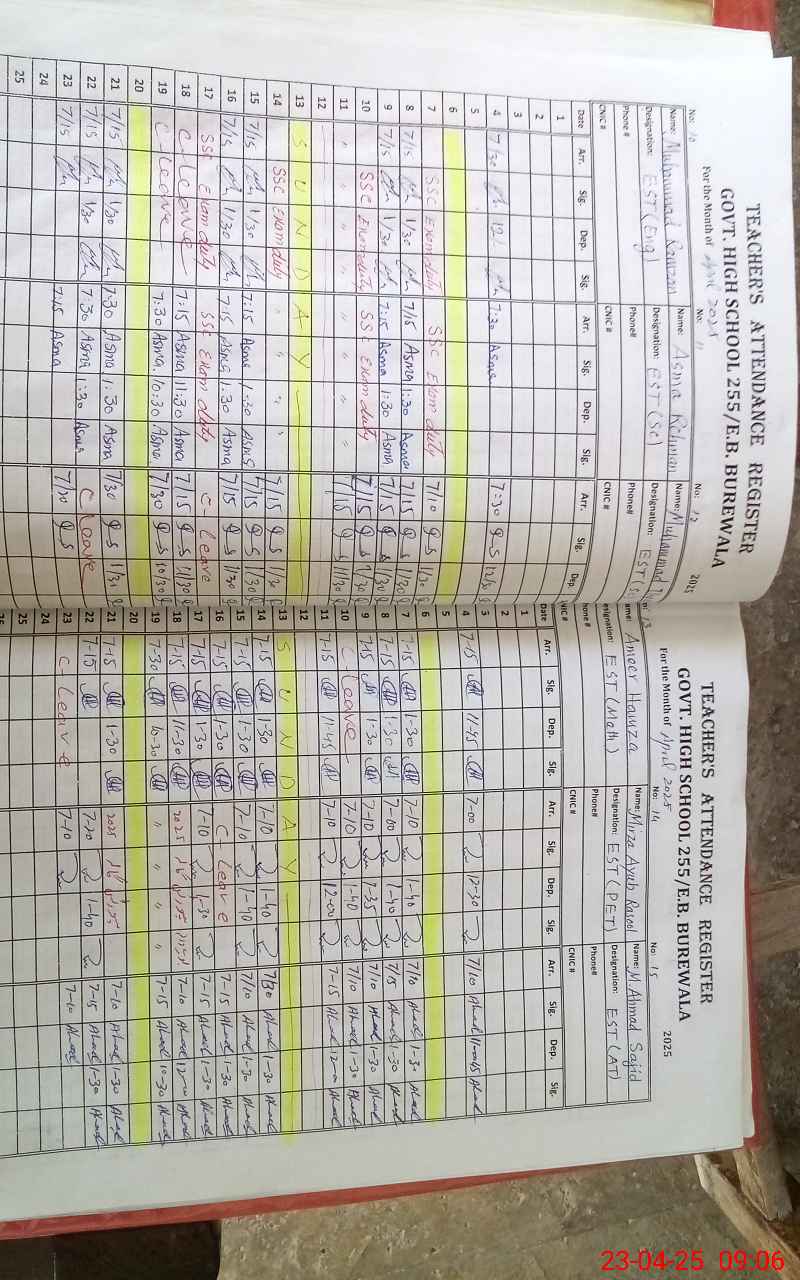 TEACHER'S ATTENDANCE REGISTER
GOVT. HIGH SCHOOL 255/E.B. BUREWALA
For the Month of April 2025 2025
No: 10 No: 11 No: 12
Name: Muhammad Ramzan Name: Asma Rehman Name: Muhammad
Designation: EST(Eng) Designation: EST(Sc) Designation: EST(Sc
Phone # Phone# Phone#
CNIC # CNIC # CNIC #
Date Arr. Sig. Dep. Sig. Arr. Sig. Dep. Sig. Arr. Sig. Dep.
1
2
3
4 7/30 12/ 7:30 Asma 7:30
5
6
7 SSC Exam duty SSC Exam duty 7/10 1/30
8 7/15 1/30 7/15 Asma 1:30 Asma 7/15 1/30
9 7/15 1/30 7:15 Asma 1:30 Asma 7/15 1/30
10 SSC Exam duty SSC Exam duty 7/15 1/30
11 " " " " " " 7/15 11/30
12
13 S U N D A Y
14 SSC Exam duty " " 7/15 1/30
15 7/15 1/30 7:15 Asma 1:30 Asma 7/15 1/30
16 7/15 1/30 7:15 Asma 1:30 Asma 7/15 1/30
17 SSC Exam duty SSC Exam duty C- leave
18 C-leave 7:15 Asma 11:30 Asma 7/15 11/30
19 C-leave 7:30 Asma 10:30 Asma 7/30 10/30
20
21 7/15 1/30 7:30 Asma 1:30 Asma 7/30 1/30
22 7/15 1/30 7:30 Asma 1:30 Asma C leave
23 7/15 7:15 Asma 7/30
24
25
TEACHER'S ATTENDANCE REGISTER
GOVT. HIGH SCHOOL 255/E.B. BUREWALA
For the Month of April 2025 2025
13 No: 14 No: 15
Name: Ameer Hamza Name: Mirza Ayub Rasool Name: M. Ahmad Sajid
Designation: EST(Math) Designation: EST(PET) Designation: EST(AT)
Phone # Phone# Phone#
CNIC # CNIC # CNIC #
Date Arr. Sig. Dep. Sig. Arr. Sig. Dep. Sig. Arr. Sig. Dep. Sig.
1
2
3
4 7-15 11-45 7-00 12-30 7/10 Ahmad 11-45 Ahmad
5
6
7 7-15 1-30 7-10 1-40 7/10 Ahmad 1-30 Ahmad
8 7-15 1-30 7-00 1-40 7/15 Ahmad 1-30 Ahmad
9 7-15 1-30 7-10 1-35 7/10 Ahmad 1-30 Ahmad
10 C-leave 7-10 1-40 7/10 Ahmad 1-30 Ahmad
11 7-15 11-45 7-10 12-00 7-15 Ahmad 12-0 Ahmad
12
13 S U N D A Y
14 7-15 1-30 7-10 1-40 7/30 Ahmad 1-30 Ahmad
15 7-15 1-30 7-10 1-40 7/10 Ahmad 1-30 Ahmad
16 7-15 1-30 C-leave 7-15 Ahmad 1-30 Ahmad
17 7-15 1-30 7-10 1-30 7-15 Ahmad 1-30 Ahmad
18 7-15 11-30 2025 7-10 Ahmad 12-0 Ahmad
19 7-30 10-30 " " " 7-15 Ahmad 10-30 Ahmad
20
21 7-15 1-30 2025 7-10 Ahmad 1-30 Ahmad
22 7-15 7-20 1-40 7-15 Ahmad 1-30 Ahmad
23 C-leave 7-10 7-10 Ahmad
24
25
26
23-04-25 09:06